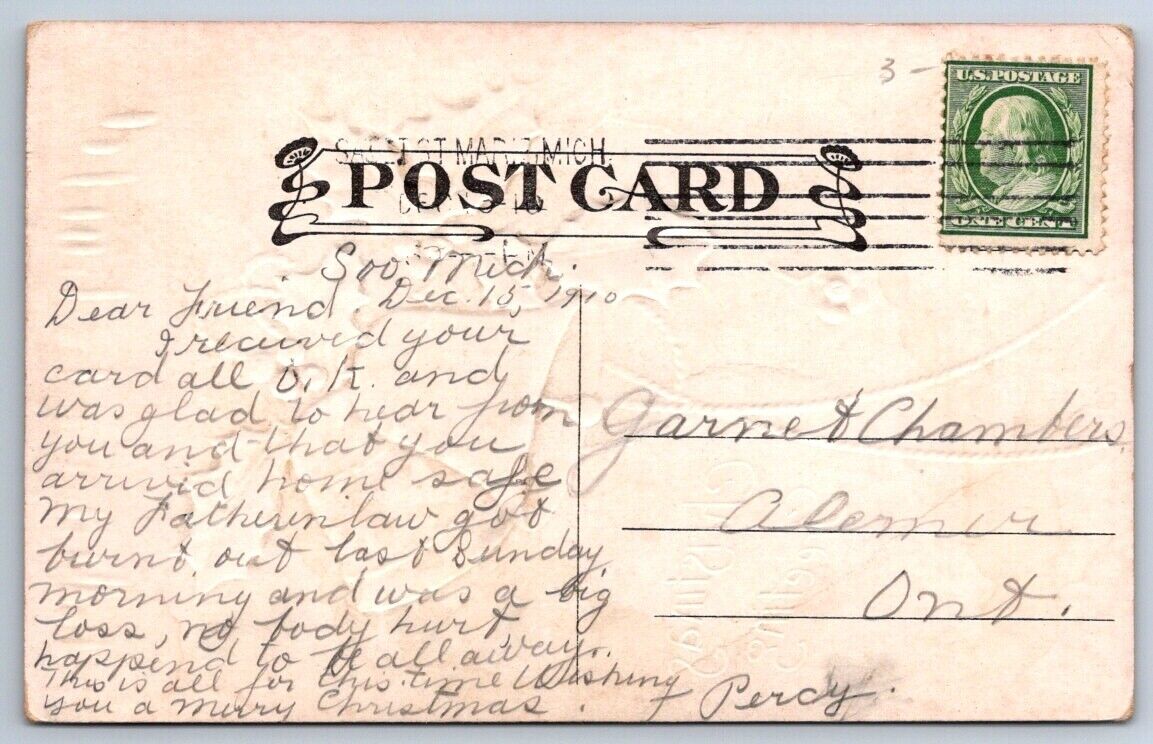 3 -
U.S. POSTAGE
ONE CENT
MICH.
POST CARD
Soo, Mich.
Dec. 15, 1910
Dear Friend.
I received your
card all O.K. and
was glad to hear from
you and that you
arrivid home safe
My Fatherinlaw got
burnt out last Sunday
morning and was a big
loss, no body hurt
happend to be all away.
This is all for this time Wishing
you a Merry Christmas.
Percy.
Garnet Chambers,
Ont.